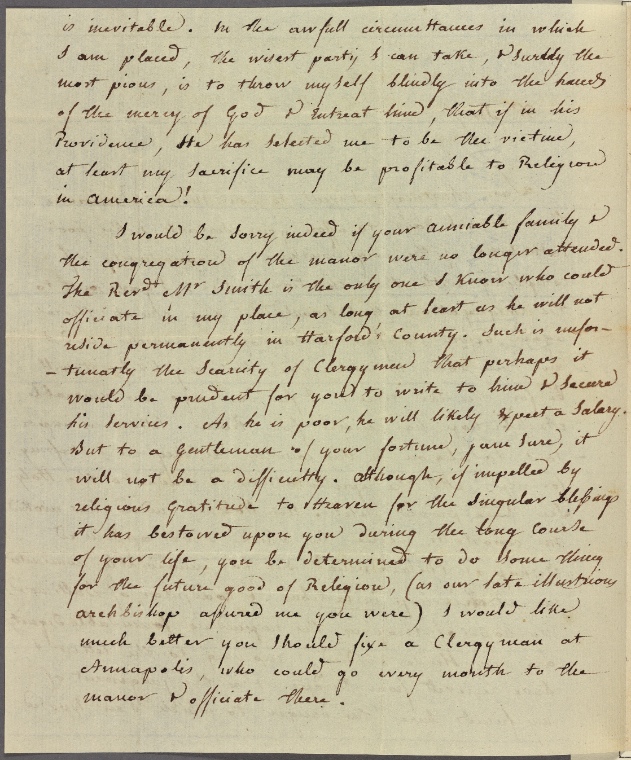 is inevitable. In the awfull circumstances in which
I am placed, the wisest party I can take, & surely the
most pious, is to throw myself blindly into the hands
of the mercy of God & intreat him, that if in his
Providence, He has selected me to be the victim,
at least my sacrifice may be profitable to Religion
in America!
I would be sorry indeed if your amiable family &
the congregation of the manor were no longer attended.
The Revd. Mr Smith is the only one I know who could
officiate in my place, as long at least as he will not
reside permanently in Harford's County. Such is unfor-
-tunatly the Scarcity of Clergymen that perhaps it
would be prudent for you to write to him & secure
his services. As he is poor, he will likely expect a Salary.
But to a Gentleman of your fortune, I am sure, it
will not be a difficulty. Although, if impelled by
religious gratitude to Heaven for the singular blessings
it has bestowed upon you during the long course
of your life, you be determined to do some thing
for the future good of Religion, (as our late illustrious
archbishop assured me you were) I would like
much better you should fixe a Clergyman at
Annapolis, who could go every month to the
manor & officiate there.